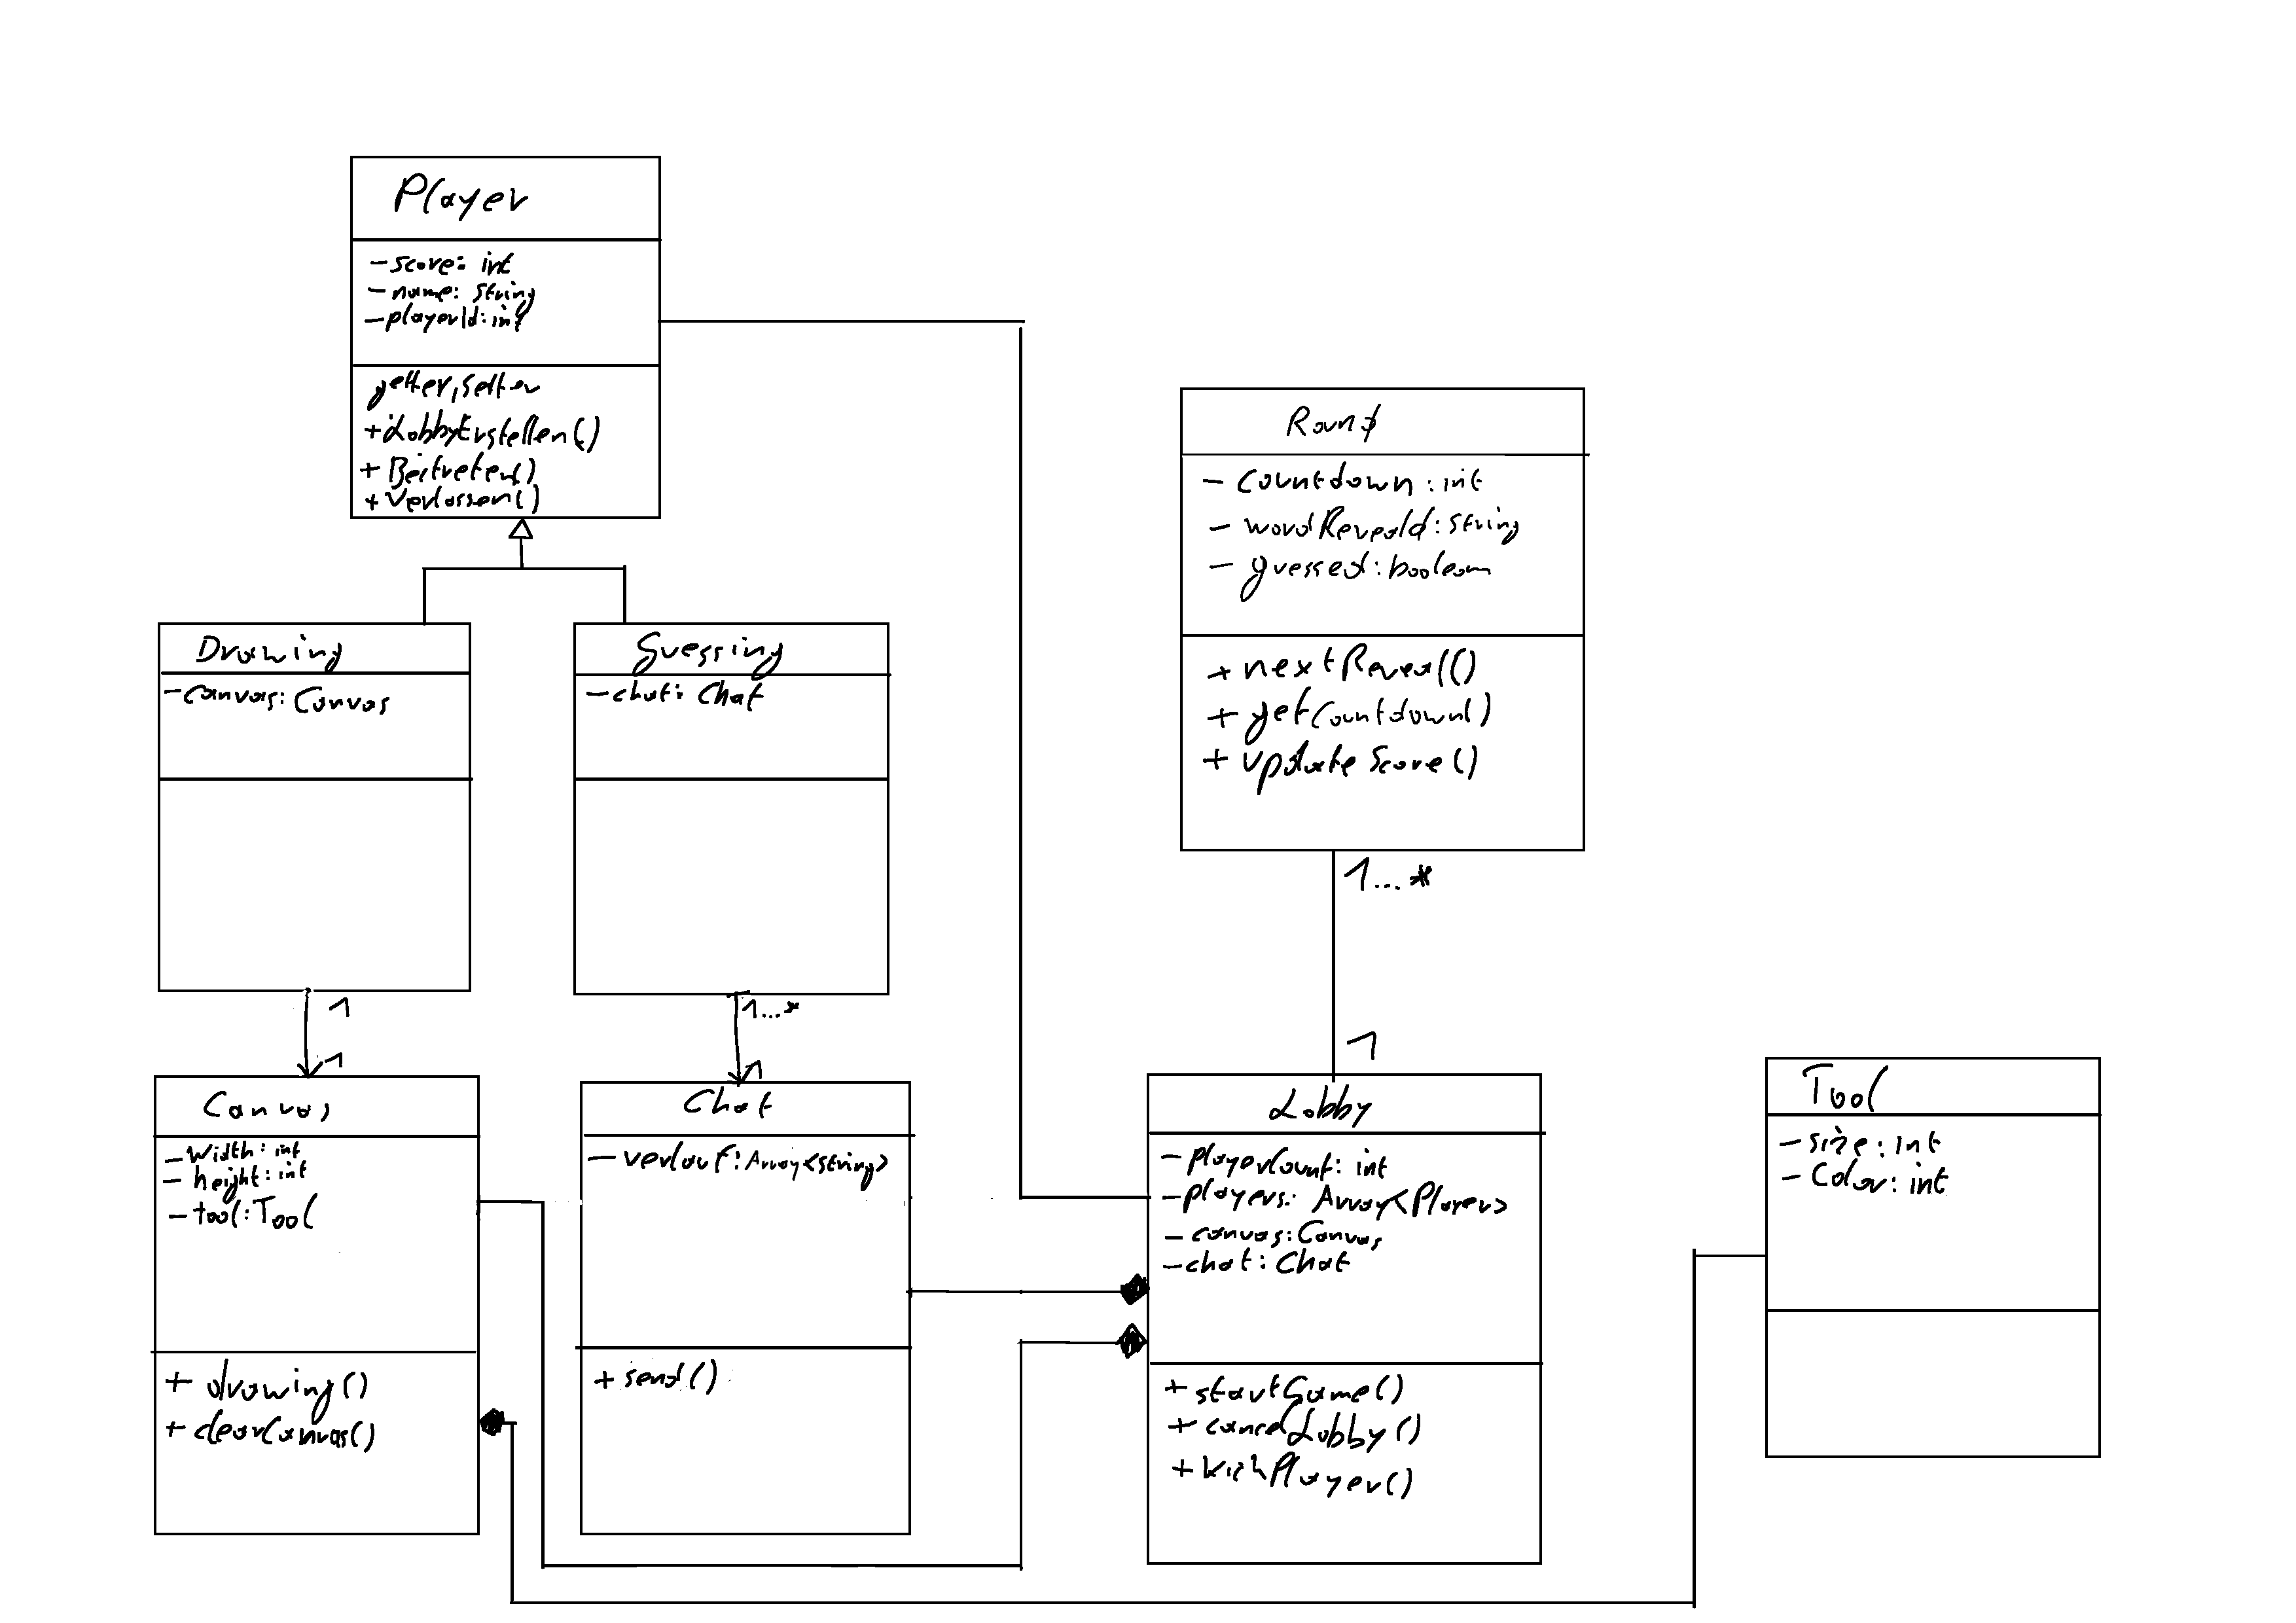 Player
- score: int
- name: string
- playerId: int
getter, setter
+ LobbyErstellen()
+ Beitreten()
+ Verlassen()
Round
- Countdown: int
- wordReveald: string
- guessed: boolean
+ nextReveal()
+ getCountdown()
+ updateScore()
Drawing
- canvas: Canvas
Guessing
- chat: Chat
1
1...*
1...*
1
1
1
Canvas
- Width: int
- height: int
- tool: Tool
+ drawing()
+ clearCanvas()
Chat
- verlauf: Array<string>
+ send()
Lobby
- playerCount: int
- players: Array<Player>
- canvas: Canvas
- chat: Chat
+ startGame()
+ cancelLobby()
+ kickPlayer()
Tool
- size: int
- Color: int